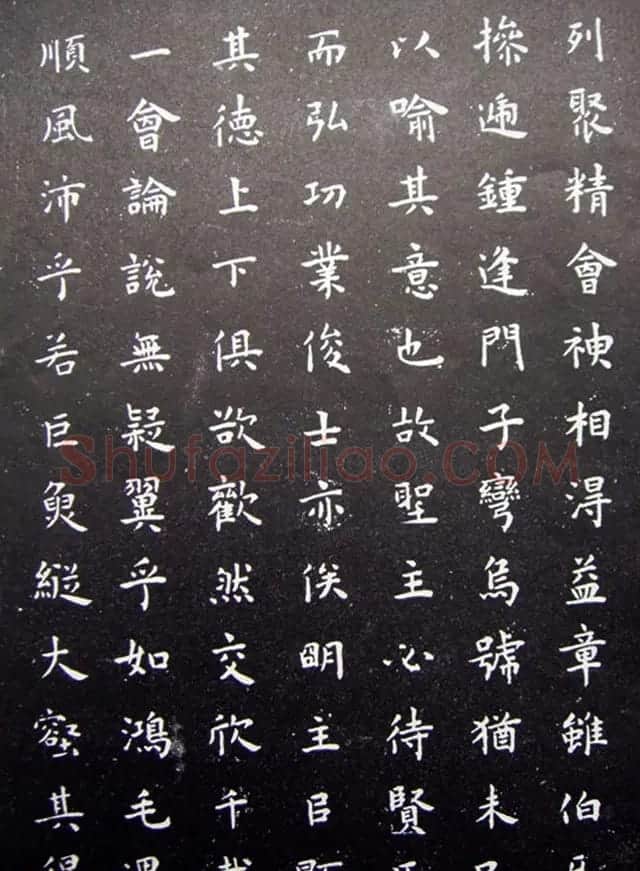 列聚精會神相得益章雖伯
操遞鍾逢門子彎烏號猶未
以喻其意也故聖主必待賢
而弘功業俊士亦俟明主㠯
其德上下俱欲歡然交欣千
一會論說無疑翼乎如鴻毛
順風沛乎若巨魚縱大壑其
Shufaziliao.COM